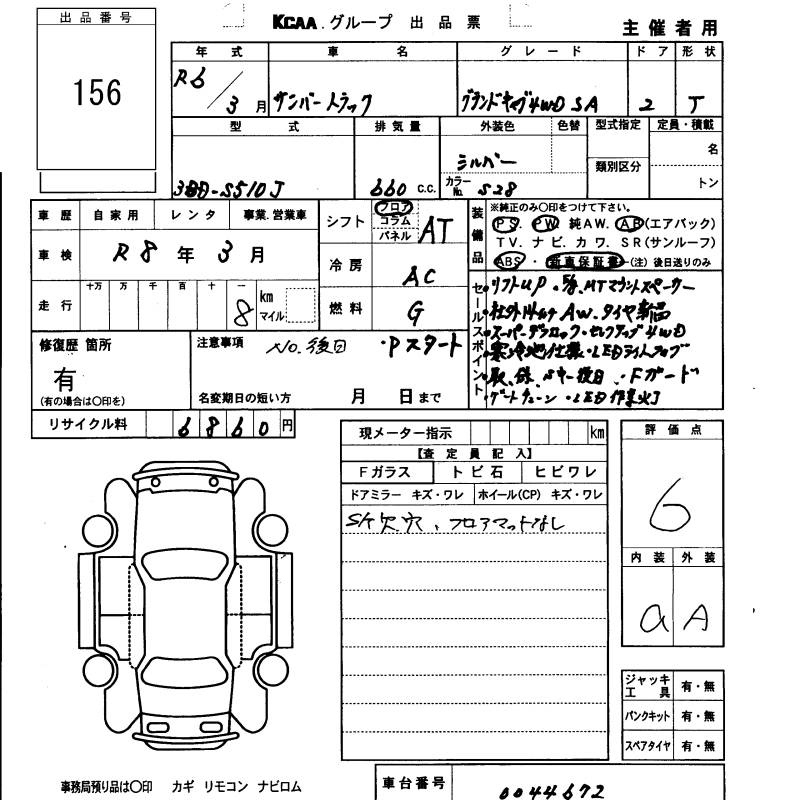 出品番号
156
KCAA グループ 出品票
主催者用
年式 車名 グレード ドア 形状
R6/3月 サンバートラック グランドキャブ4WD SA 2 T
型式 排気量 外装色 色替 型式指定 定員・積載
類別区分 名
3BD-S510J 660 c.c. シルバー カラーNo. S28 トン
車歴 自家用 レンタ 事業.営業車
シフト フロア コラム パネル AT
車検 R8年3月
冷房 AC
走行 十万 万 千 百 十 一 8 km マイル
燃料 G
装備品 ※純正のみ○印をつけて下さい。
PS. PW. 純AW. AB(エアバック)
TV. ナビ. カワ. SR(サンルーフ)
ABS・新車保証書(注)後日送りのみ
セールスポイント
・リフトUP MTマウントスペーサー
・社外14インチAW.タイヤ新品
・スーパーデフロック・セレクティブ4WD
・寒冷地仕様・LEDライトアップ
後日・Fガード
・ゲートチェーン・LED作業灯
修復歴 箇所
有
(有の場合は○印を)
注意事項 No.後日 ・Pスタート
名変期日の短い方 月 日まで
リサイクル料 6860円
現メーター指示 km
【査定員記入】
Fガラス トビ石 ヒビワレ
ドアミラー キズ・ワレ ホイール(CP) キズ・ワレ
S/K欠穴、フロアマットなし
評価点
6
内装 外装
a A
ジャッキ工具 有・無
パンクキット 有・無
スペアタイヤ 有・無
事務局預り品は○印 カギ リモコン ナビロム
車台番号 0044672